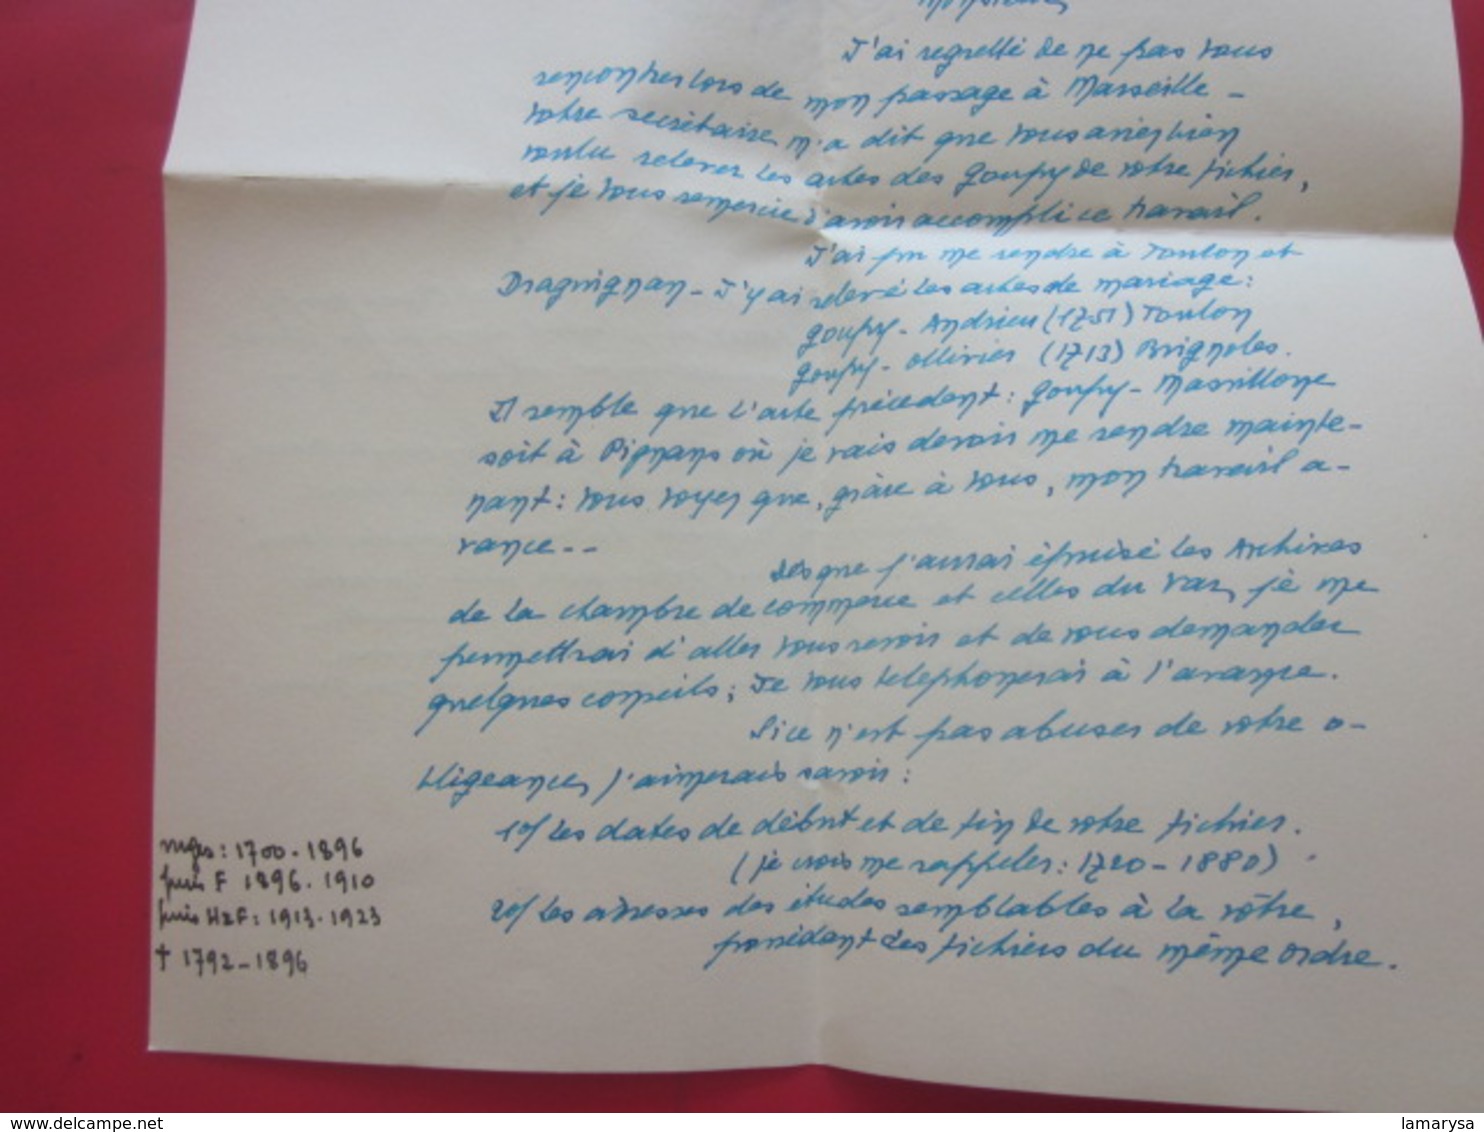 Monsieur,
J'ai regretté de ne pas vous
rencontrer lors de mon passage à Marseille -
Votre secrétaire m'a dit que vous aviez bien
voulu relever les actes des Goupy de votre fichier,
et je vous remercie d'avoir accompli ce travail.
J'ai pu me rendre à Toulon et
Draguignan - J'y ai relevé les actes de mariage :
Goupy - Andrieu (1751) Toulon
Goupy - Ollivier (1713) Brignoles.
Il semble que l'acte précédent : Goupy - Massillone
soit à Pignans où je vais devoir me rendre mainte-
nant : vous voyez que, grâce à vous, mon travail a-
vance - -
Dès que j'aurai épuisé les Archives
de la chambre de commerce et celles du Var, je me
permettrai d'aller vous revoir et de vous demander
quelques conseils ; Je vous telephonerai à l'avance.
Si ce n'est pas abuser de votre o-
bligeance, j'aimerais savoir :
1o/ les dates de début et de fin de votre fichier.
(je crois me rappeler : 1720 - 1880)
2o/ les adresses des études semblables à la vôtre,
possédant des fichiers du même ordre.
mges : 1700 - 1896
puis F 1896 - 1910
puis H&F : 1913 - 1923
† 1792 - 1896
www.delcampe.net
lamarysa